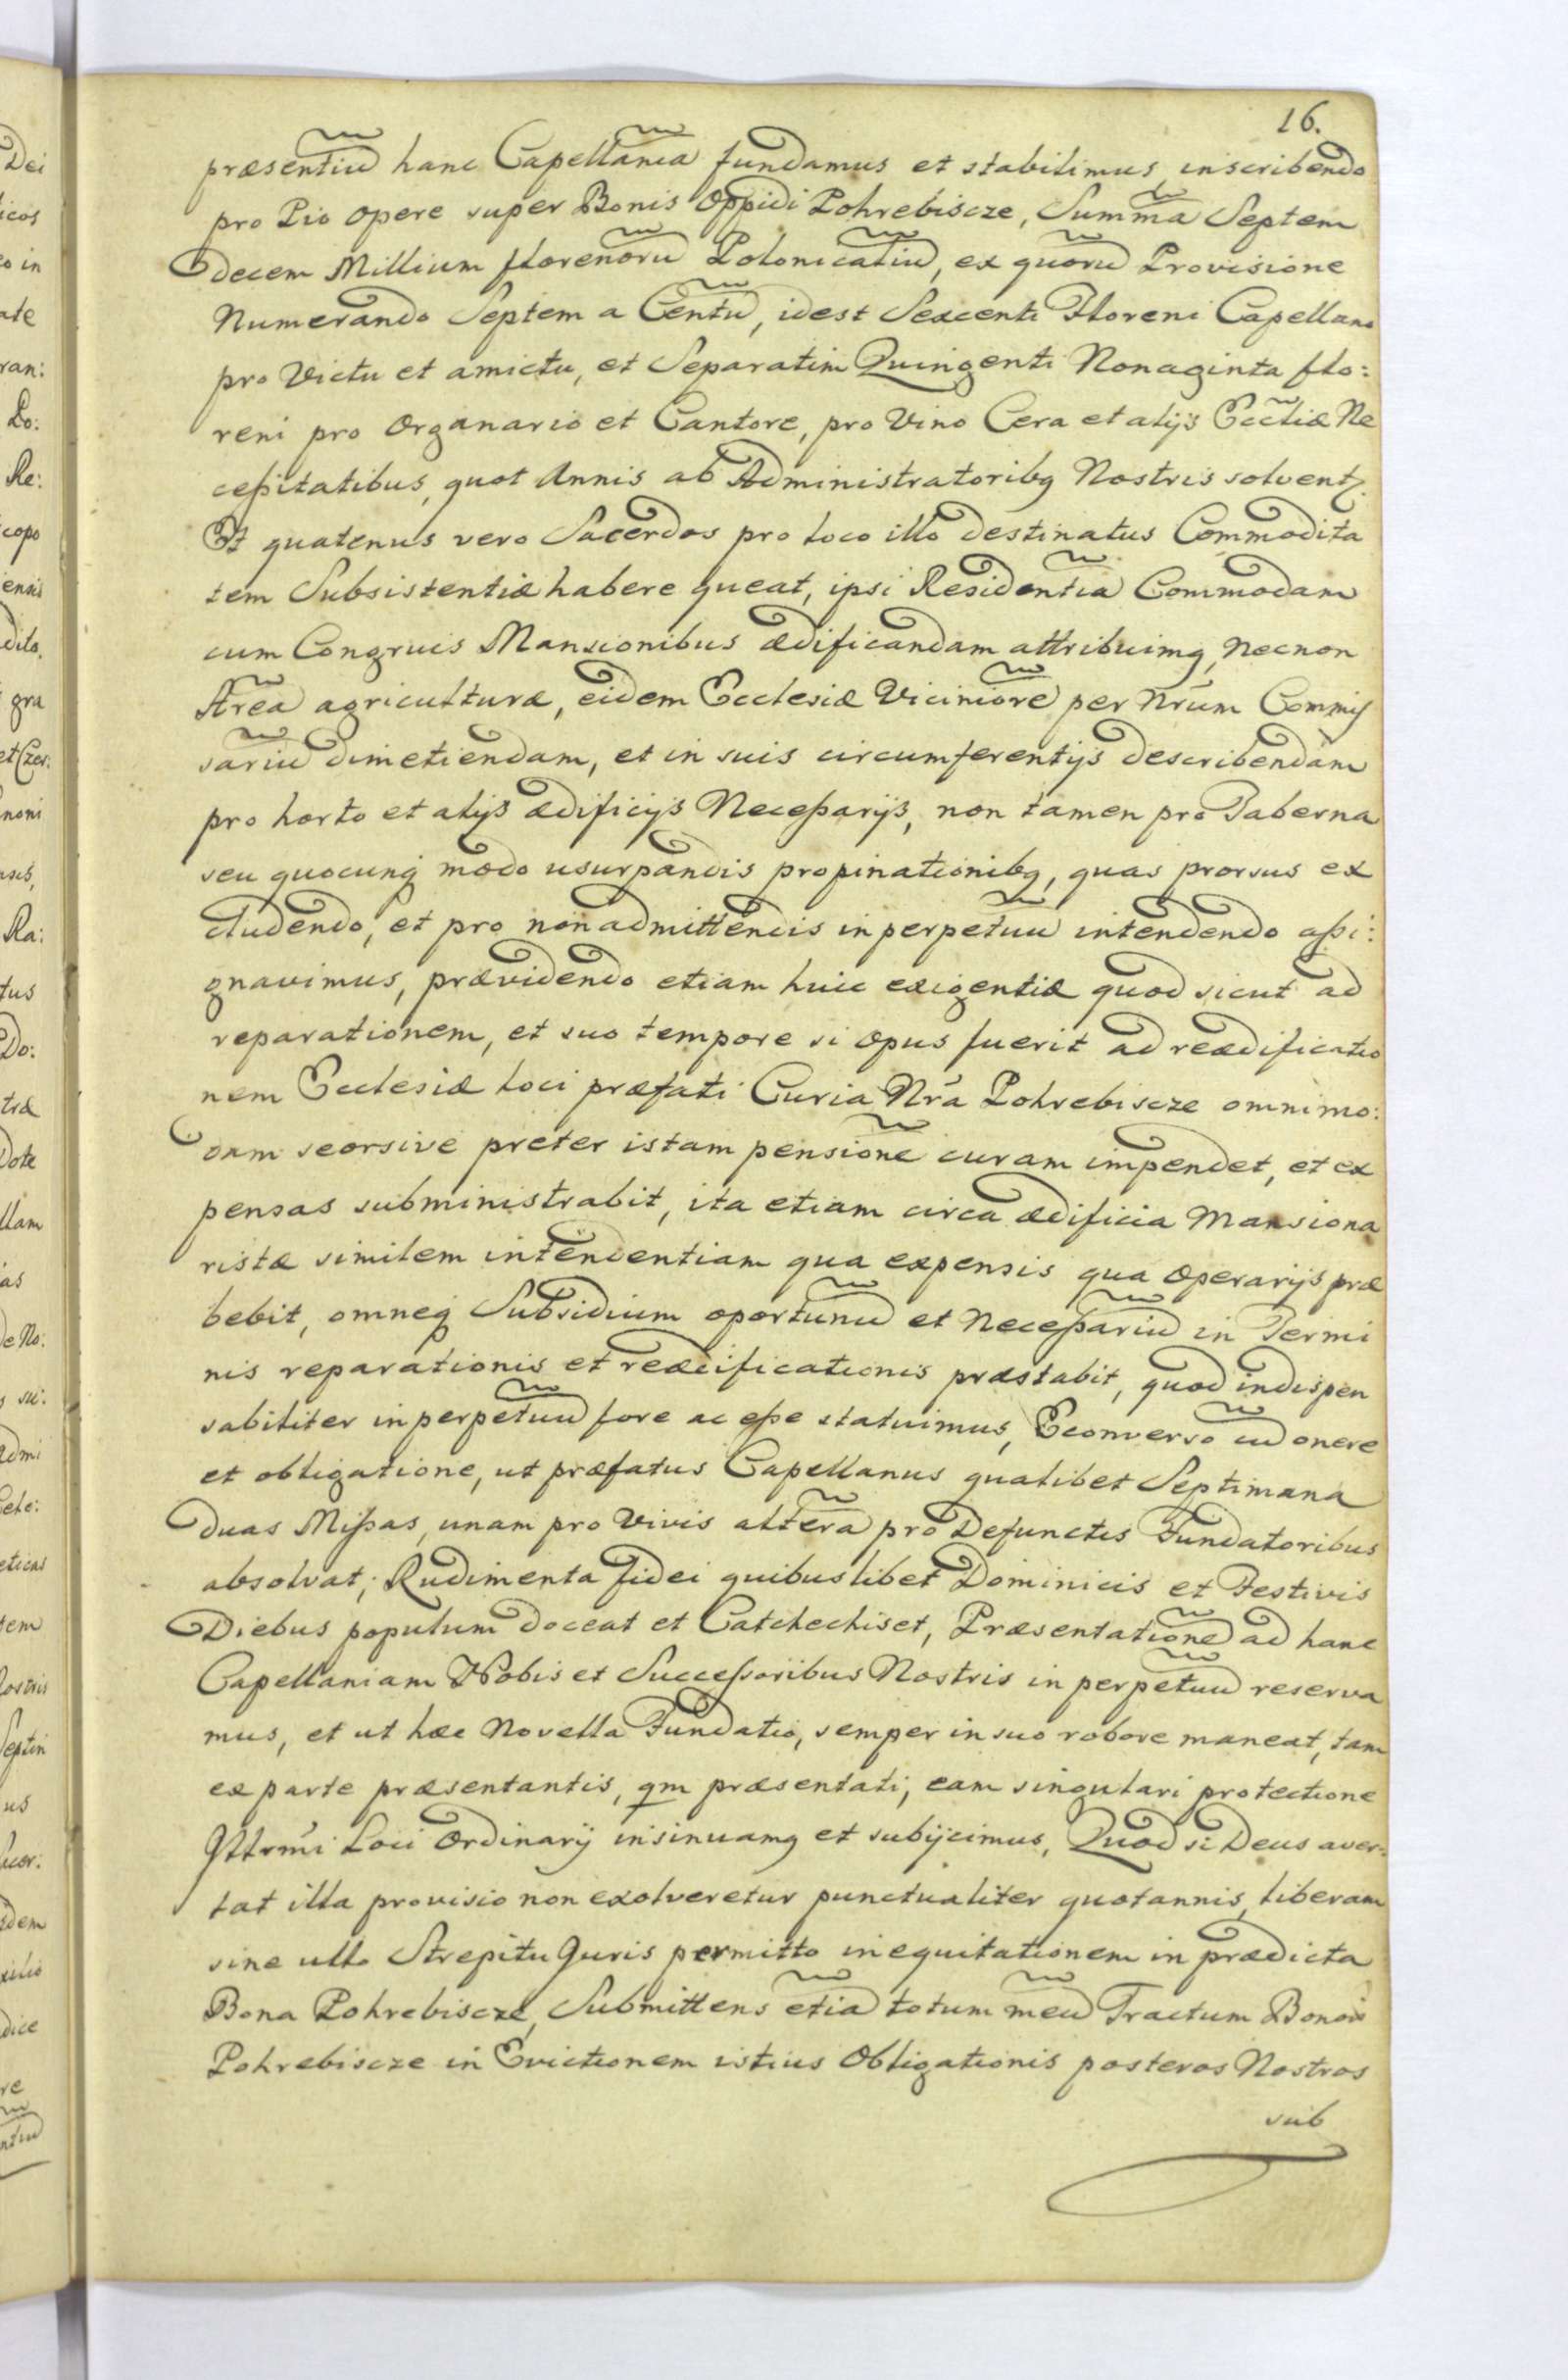 16.
præsentiũ hanc Capellaniã fundamus et stabilimus, inscribendo
pro Pio opere super Bonis Oppidi Pohrebiscze, Summã Septem
decem Millium florenorũ Polonicaliũ, ex quorũ Provisione
Numerando Septem a Centũ, idest Sexcenti Floreni Capellano
pro Victu et amictu, et Separatim Quingenti Nonaginta flo:
reni pro Organario et Cantore, pro Vino Cera et alijs Eccliæ Ne
ceßitatibus, quot Annis ab Administratoribq Nostris solventz.
Et quatenus vero Sacerdos pro loco illo destinatus Commodita
tem Subsistentiæ habere queat, ipsi Residentiã Commodam
cum Congruis Mansionibus ædificandam attribuimq, necnon
Areã agriculturæ, eidem Ecclesiæ Viciniorẽ per Nrũm Commis
sariũ dimetiendam, et in suis circumferentijs describendam
pro horto et alijs ædificijs Neceßarijs, non tamen pro Taberna
seu quocunq modo usurpandis propinationibq, quas prorsus ex
cludendo, et pro non admittendis in perpetuũ intendendo aßi:
gnavimus, prævidendo etiam huic exigentiæ quod sicut ad
reparationem, et suo tempore si opus fuerit ad reædificatio
nem Ecclesiæ loci præfati Curia Nrã Pohrebiscze omnimo:
dam seorsive preter istam pensionẽ curam impendet, et ex
pensas subministrabit, ita etiam circa ædificia Mansiona
ristæ similem intendentiam qua expensis qua operarijs præ
bebit, omneq Subsidium oportunũ et Neceßariũ in Termi
nis reparationis et reædificationis præstabit, quod indispen
sabiliter in perpetuũ fore ac eße statuimus, Econverso cũ onere
et obligatione, ut præfatus Capellanus qualibet Septimana
duas Mißas, unam pro Vivis alterã pro Defunctis Fundatoribus
absolvat, Rudimenta fidei quibuslibet Dominicis et Festivis
Diebus populum doceat et Catchechiset, Præsentationẽ ad hanc
Capellaniam Nobis et Succeßoribus Nostris in perpetuũ reserva
mus, et ut hæc Novella Fundatio, semper in suo robore maneat, tam
ex parte præsentantis, qm præsentati, eam singulari protectione
Illrmi Loci Ordinarij insinuamq et subijcimus, Quod si Deus aver:
tat illa provisio non exolveretur punctualiter quotannis, liberam
sine ullo Strepitu Juris permitto inequitationem in prædicta
Bona Pohrebiscze, Submittens etiã totum meũ Tractum Bonorũ
Pohrebiscze in Evictionem istius Obligationis posteros Nostros
sub